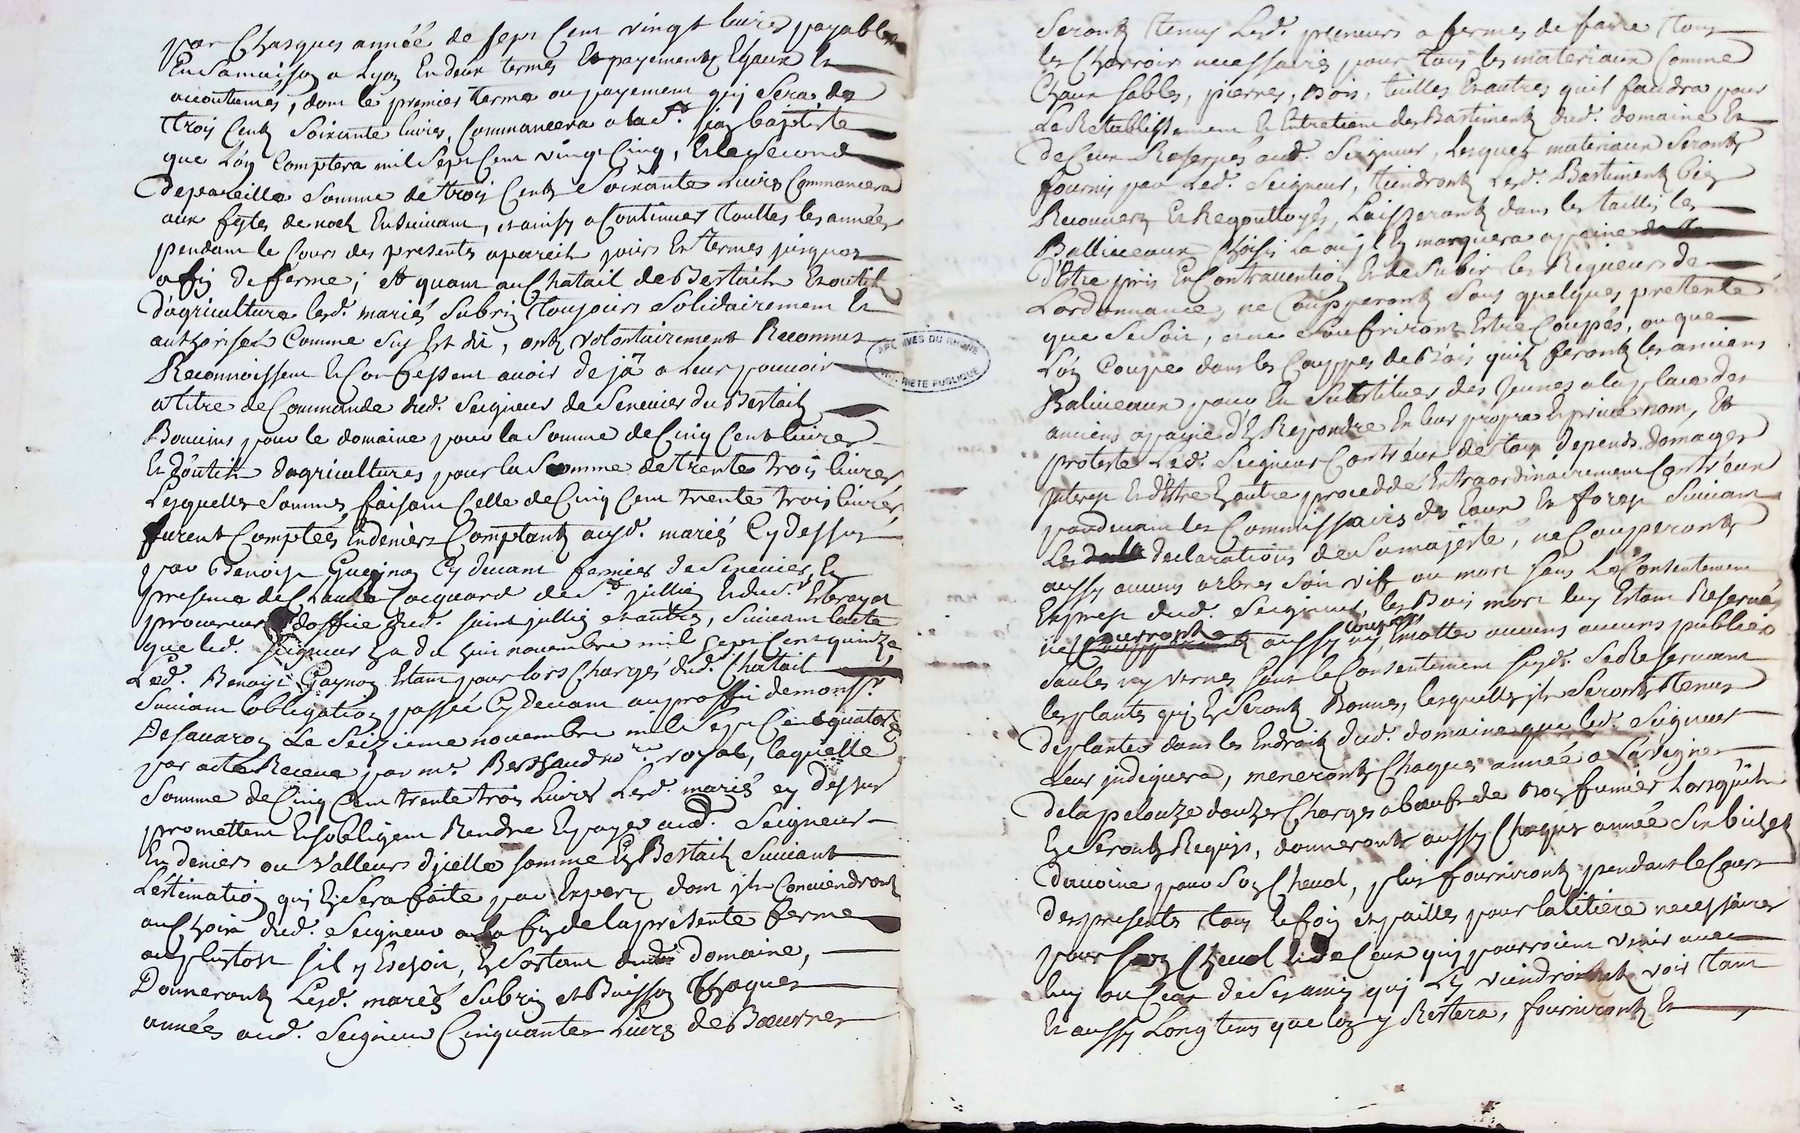 par Chasques année de sept Cent vingt livres payable
En Sa maison a Lyon En deux termes Et payements Egaux Et
accoutumés, dont le premier terme ou payement quj Sera de
trois Cent Soixante livres, Commancera a la St. jean baptiste
que l'on Comptera mil Sept Cent vingt Cinq, Et le Second
de pareille Somme de trois Cent Soixante Livres Commancera
aux festes de noel Ensuivant, et ainsy a Continuer touttes les années
pendant le Cours des presentes a pareils jours Et termes jusques
a fin de ferme; Et quant au Chatail de Bestail Et outils
d'agriculture lesd. mariés Subrin toujours Solidairement Et
authorisés Comme Sus Est dit, ont volontairement Reconnus
Reconnoissent Et Confessent avoir de jâ a Leur pouvoir
a titre de Commande dud. Seigneur de Senevier du Bestail
Bouvins pour le domaine pour la Somme de Cinq Cent livres
Et d'outils d'agricultures pour la Somme de trente trois livres
Lesquelles Sommes faisant Celle de Cinq Cent trente trois livres
furent Comptées En deniers Comptants ausd. mariés Cy dessus
par Benoist Guaynon Cy devant fermier de Senevier En
presence de Claude Cocquard de St. jullien
procureur d'office dud. saint jullien et autres, Suivant lacte
que led. Seigneur En a du huit novembre mil Sept Cent quinze
Led. Benoist Gaynon Estant pour lors Chargé dud. Chatail
Suivant l'obligation passée Cy devant au proffit de monsr.
De Savaron Le Seizieme novembre mil Sept Cent quatorze
par acte Recue par me. Berthaud nore. royal, laquelle
Somme de Cinq Cent trente trois Livres Lesd. mariés cy dessus
promettent Et s'obligent Rendre Et payer aud. Seigneur
En deniers ou valleurs d'jcelle somme En Bestail Suivant
L'estimation quj En Sera faite par Expert dont jls Conviendront
au Choix dud. Seigneur a la fin de la presente ferme
ou plustost sil y Eschoit, En Sortant dud. domaine,
Donneront Lesd. mariés Subrin et Buisson Chaques
années aud. Seigneur Cinquante Livres de Beurre
Seront tenus Lesd. preneurs a fermes de faire tous
les Charrois necessaires pour tous les materiaux Comme
Chaux sables, pierres, Bois, tuilles Et autres quil faudra pour
Le Restablissement Et Entretient des Bastiments dud. domaine Et
de Ceux Reservés aud. Seigneur, Lesquels materiaux Seront
fournis par Led. Seigneur, tiendront Lesd. Bastiments bien
Recouverts Et Regouttoyés, Laisseront dans les taillis les
Balliveaux Choisis La ou jl les marquera a peine
d'Estre pris En Contravention Et de Subir les Rigueurs de
Lordonnance, ne Coupperont Sous quelques pretexte
que Se Soit, ni ne Souffriront Estre Coupés, ou que
L'on Coupe dans les Couppes de Bois quils feront les anciens
Baliveaux pour En Substituer des jeunes a la place des
anciens a peine d'En Repondre En leur propre Et privé nom, Et
proteste Led. Seigneur Contr'eux de tous depends domages
jnterest Et d'Estre En outre proceddé Extraordinairement Contr'eux
pardevant les Commissaires des Eaux Et forest Suivant
Les declarations de Sa majesté, ne Couperont
aussy aucuns arbres Soit vif ou mort Sans Le Consentement
Expres dud. Seigneur, les Bois mort luy Estant Reservés
ne pourront aussy couper ny Emotter aucuns publiers
Saules ny vernes Sans le Consentement Susd. Se Reservant
les plants quj En Seront Bonnes, lesquelles jls Seront tenus
de planter dans les Endroits dud. domaine que led. Seigneur
Leur jndiquera, meneront Chaques année a La vigne
de la pelouze douze Charges a bœufs de Bon fumier Lorsqu'ils
En Seront Requis, donneront aussy Chaque année Six bichets
d'avoine pour Son Cheval, plus fourniront pendant le Cours
des presentes tous le foin et pailles pour la litiere necessaires
pour Son Cheval Et de Ceux quj pourroient venir avec
luy ou Ceux de Ses amis quj Ly viendroient voir tant
Et aussy Long tems que lon y Restera, fourniront Et
ARCHIVES DU RHÔNE
PROPRIETE PUBLIQUE